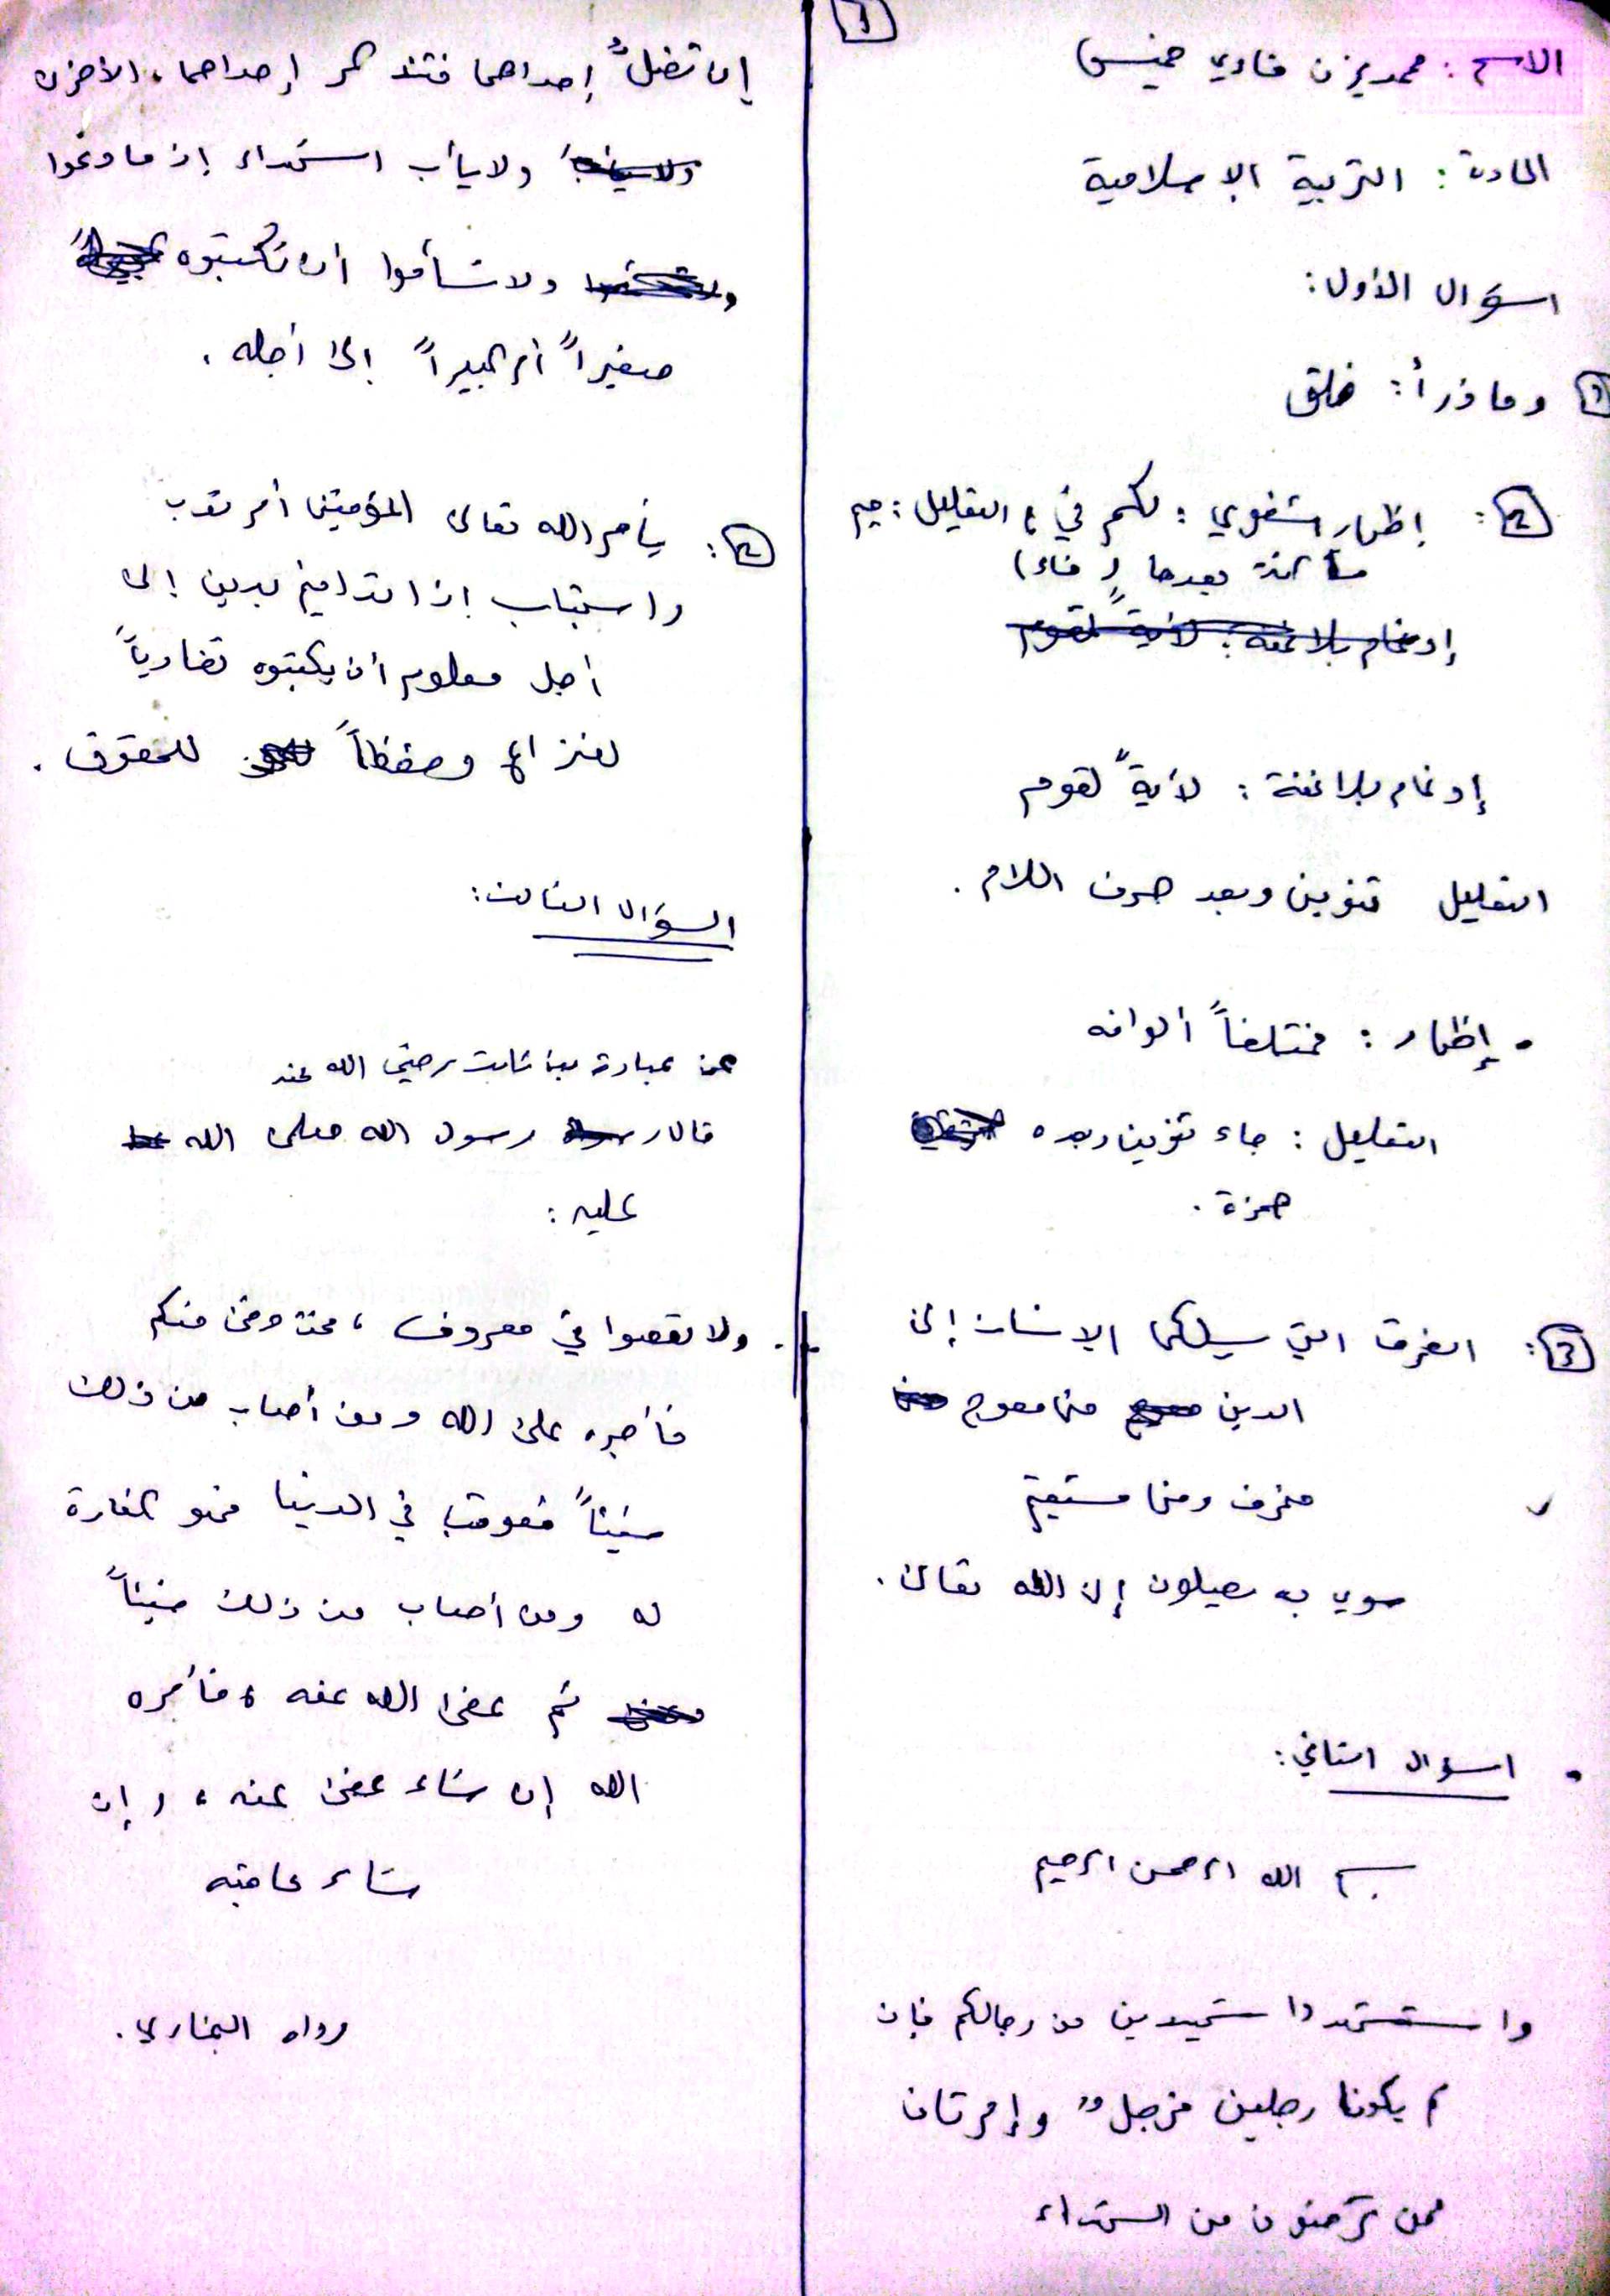 1
الاسم : محمد يزن فادي خميس
المادة : التربية الإسلامية
السؤال الأول :
1 وما ذرأ : خلق
2 : إظهار شفوي : لكم في ، التعليل : ميم
ساكنة بعدها ( فاء )
إدغام بلا غنة : لآيةً لقوم
إدغام بلا غنة : لآيةً لقوم
التعليل تنوين وبعد حرف اللام .
• إظهار : مختلفاً ألوانه
التعليل : جاء تنوين وبعده
همزة .
3 : الطرق التي يسلكها الإنسان إلى
الدين منها معوج
منحرف ومنها مستقيم
سوي به يصلون إلى الله تعالى .
• السؤال الثاني :
بسم الله الرحمن الرحيم
واستشهدوا شهيدين من رجالكم فإن
لم يكونا رجلين فرجلٌ وإمرتان
ممن ترضون من الشهداء
إن تضلُّ إحداهما فتذكر إحداهما الأخرى
ولا يأب الشهداء إذ ما دعوا
ولا تسأموا أن تكتبوه
صغيراً أو كبيراً إلى أجله .
2 : يأمر الله تعالى المؤمنين أمر ندب
واستحباب إذا تداينم بدين إلى
أجل معلوم أن يكتبوه تفادياً
للنزاع وحفظاً للحقوق .
السؤال الثالث :
عن عبادة بن ثابت رضي الله عنه
قال رسول الله صلى الله
عليه :
ولا تعصوا في معروف ، فمن وفى منكم
فأجره على الله ومن أصاب من ذلك
شيئاً فعوقب في الدنيا فهو كفارة
له ومن أصاب من ذلك شيئاً
ثم عفى الله عنه ، فأمره
الله إن شاء عفى عنه ، وإن
شاء عاقبه
رواه البخاري .